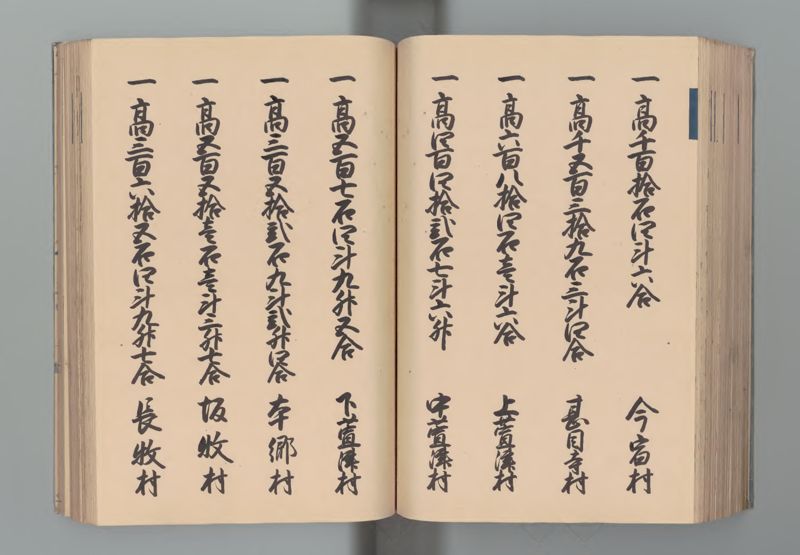 一 高千百拾石四斗六合 今宿村
一 高千五百三拾九石三斗四合 甚目寺村
一 高六百八拾四石壱斗六合 上萱津村
一 高四百四拾弐石七斗六升 中萱津村
一 高五百七石四斗九升五合 下萱津村
一 高三百五拾弐石九斗弐升四合 本郷村
一 高五百五拾壱石壱斗三升七合 坂牧村
一 高三百六拾五石四斗九升七合 長牧村